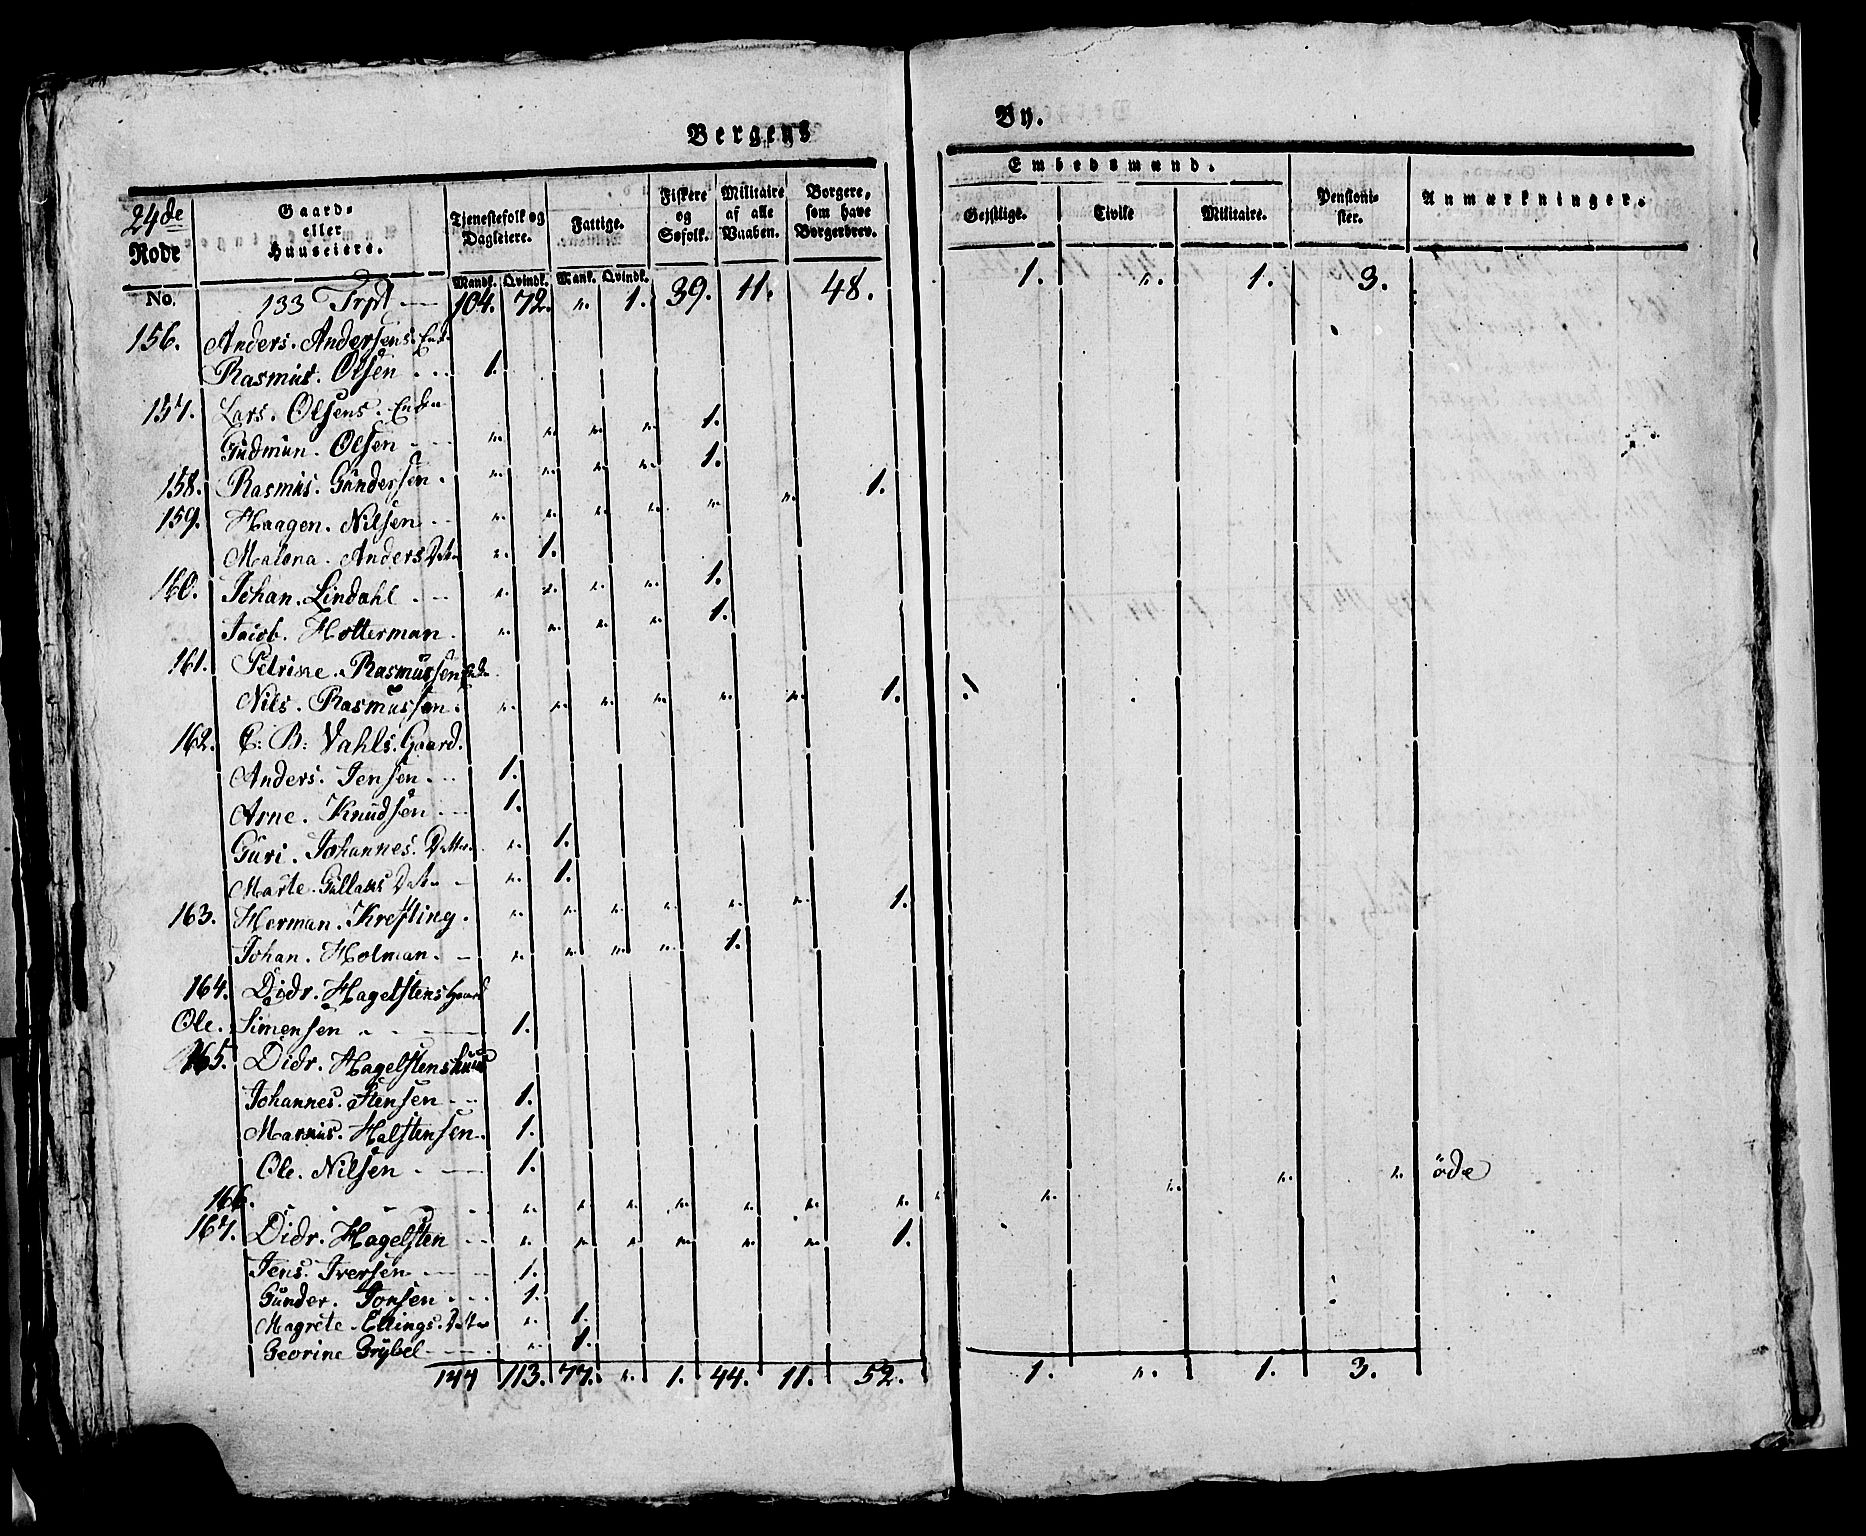 Bergens By.
24de Rode
Gaard- eller Huuseiere.
Tjenestefolk og Dagleiere.
Fattige.
Fiskere og Søfolk.
Militaire af alle Vaaben.
Borgere, som have Borgerbrev.
Embedsmænd.
Gejstlige. Civile Militaire.
Pensionister.
Anmærkninger.
No. Mandk. Qvindk. Mank. Qvindk.
133 104. 72. „. 1. 39. 11. 48. 1. „. 1. 3.
156. Anders. Andersens.
Rasmus. Olsen 1.
157. Lars. Olsens.
Gudmun. Olsen „ „ „ „ 1.
158. Rasmus. Gundersen. „ „ „ „ 1.
159. Haagen. Nilsen „ „ „ „ „ „ 1.
Malena. Anders „ 1.
160. Johan. Lindahl „ „ „ „ 1.
Jacob. Hotterman. „ „ „ „ 1.
161. Petrine. Rasmussen
Nils. Rasmussen. „ „ „ „ „ „ 1.
162. C: B: Vahls. Gaard.
Anders. Jensen 1.
Arne. Knudsen 1.
Guri. Johannes. Datter „ 1.
Marte. „ 1.
163. Herman. Krefting. „ „ „ „ „ „ 1.
Johan. Holman. „ „ „ „ 1.
164. Didr. Hagelstens Gaard
Ole. Simensen 1.
165. Didr. Hagelstens huus
Johannes. Stensen 1.
Halstensen. 1.
Ole. Nilsen 1.
166. „ „ „ „ „ „ „ „ „ „ „ öde
167. Didr. Hagelsten „ „ „ „ „ „ 1.
Jens. Iversen 1.
Gunder. Jonsen 1.
Magrete. Ellings. „ 1.
Georine Grybel „ 1.
144 113. 77. „. 1. 44. 11. 52. 1. „. 1. 3.